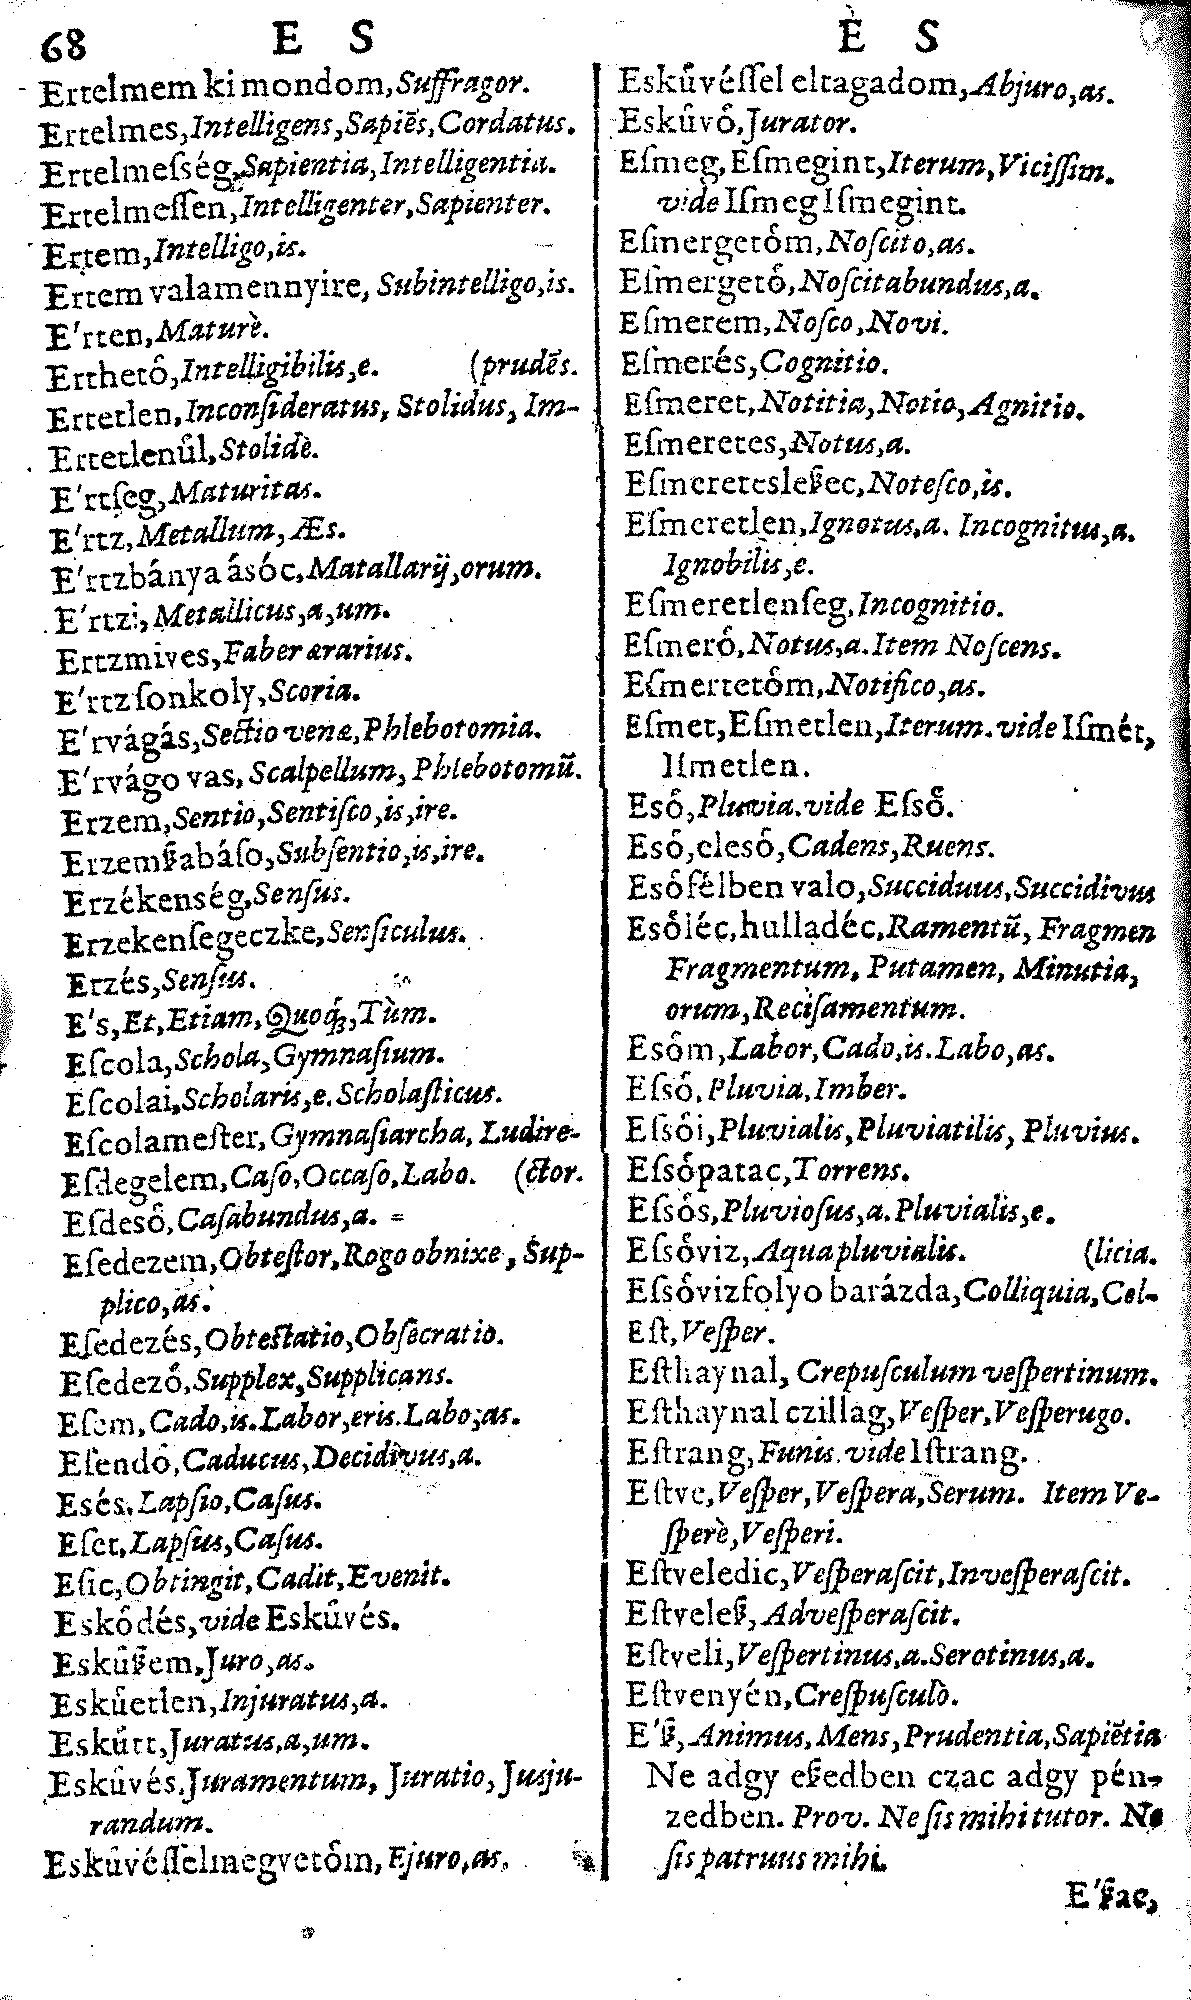 68 E S
È S
Ertelmem ki mondom, Suffragor.
Ertelmes, Intelligens, Sapiẽs, Cordatus.
Ertelmeſség, Sapientia, Intelligentia.
Ertelmeſſen, Intelligenter, Sapienter.
Ertem, Intelligo, is.
Ertem valamennyire, Subintelligo, is.
E'rten, Maturè.
Ertheto̓, Intelligibilis, e. (prudẽs.
Ertetlen, Inconſideratus, Stolidus, Im-
Ertetlenu̓l, Stolidè.
E'rtſeg, Maturitas.
E'rtz, Metallum, Æs.
E'rtzbánya ásóc, Matallarij, orum.
E'rtzi, Metallicus, a, um.
Ertzmives, Faber ærarius.
E'rtz ſonkoly, Scoria.
E'rvágás, Sectio venæ, Phlebotomia.
E'rvágo vas, Scalpellum, Phlebotomũ.
Erzem, Sentio, Sentiſco, is, ire.
Erzemꝟabáſo, Subſentio, is, ire.
Erzékenség, Senſus.
Erzekenſegeczke, Senſiculus.
Erzés, Senſus.
E's, Et, Etiam, Quoq́ꝫ, Tùm.
Eſcola, Schola, Gymnaſium.
Eſcolai, Scholaris, e. Scholaſticus.
Eſcolameſter, Gymnaſiarcha, Ludire-
Eſdegelem, Caſo, Occaſo, Labo. (ctor.
Eſdeso̓, Caſabundus, a.
Eſedezem, Obteſtor, Rogo obnixe, Sup-
plico, as.
Eſedezés, Obteſtatio, Obſecratio.
Eſedezo̓, Supplex, Supplicans.
Eſem, Cado, is. Labor, eris. Labo, as.
Eſendo̓, Caducus, Decidivus, a.
Esés, Lapſio, Caſus.
Eſet, Lapſus, Caſus.
Eſic, Obtingit, Cadit, Evenit.
Esko̓dés, vide Esku̓vés.
Esku̓ꝟem, Juro, as.
Esku̓etlen, Injuratus, a.
Esku̓tt, Juratus, a, um.
Esku̓vés, Juramentum, Juratio, Jusju-
randum.
Esku̓véſſelmegveto̓m, Ejuro, as.
Esku̓véſſel eltagadom, Abjuro, as.
Esku̓vo̓, Jurator.
Eſmeg, Eſmegint, Iterum, Viciſſim.
vide Iſmeg Iſmegint.
Eſmergeto̓m, Noſcito, as.
Eſmergeto̓, Noſcitabundus, a.
Eſmerem, Noſco, Novi.
Eſmerés, Cognitio.
Eſmeret, Notitia, Notio, Agnitio.
Eſmeretes, Notus, a.
Eſmeretesleꝟec, Noteſco, is.
Eſmeretlen, Ignotus, a. Incognitus, a.
Ignobilis, e.
Eſmeretlenſeg, Incognitio.
Eſmero̓, Notus, a. Item Noſcens.
Eſmerteto̓m, Notifico, as.
Eſmet, Eſmetlen, Iterum. vide Iſmét,
Iſmetlen.
Eso̓, Pluvia. vide Eſso̓.
Eso̓, eleso̓, Cadens, Ruens.
Eso̓félben valo, Succiduus, Succidivus
Eso̓léc, hulladéc, Ramentũ, Fragmen
Fragmentum, Putamen, Minutia,
orum, Reciſamentum.
Eso̓m, Labor, Cado, is. Labo, as.
Eſso̓, Pluvia, Imber.
Eſso̓i, Pluvialis, Pluviatilis, Pluvius.
Eſso̓patac, Torrens.
Eſso̓s, Pluvioſus, a. Pluvialis, e.
Eſso̓viz, Aqua pluvialis. (licia.
Eſso̓vizfolyo barázda, Colliquia, Col-
Eſt, Veſper.
Eſthaynal, Crepuſculum veſpertinum.
Eſthaynal czillag, Veſper, Veſperugo.
Eſtrang, Funis. vide Iſtrang.
Eſtve, Veſper, Veſpera, Serum. Item Ve-
ſperè, Veſperi.
Eſtveledic, Veſperaſcit, Inveſperaſcit.
Eſtveleꝟ, Adveſperaſcit.
Eſtveli, Veſpertinus, a. Serotinus, a.
Eſtvenyén, Creſpuſculò.
E'ꝟ, Animus, Mens, Prudentia, Sapiẽtia
Ne adgy eꝟedben czac adgy pén-
zedben. Prov. Ne ſis mihi tutor. Ne
ſis patruus mihi.
E'ꝟac,